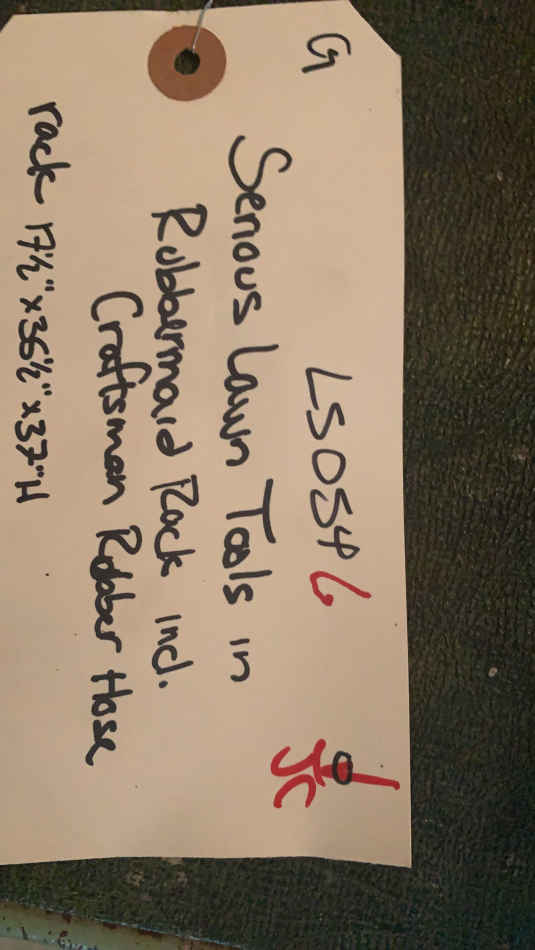 G
LS054 6
Serious Lawn Tools in
Rubbermaid Rack incl.
Craftsman Rubber Hose
rack 17½" x 36½" x 37"H
JC